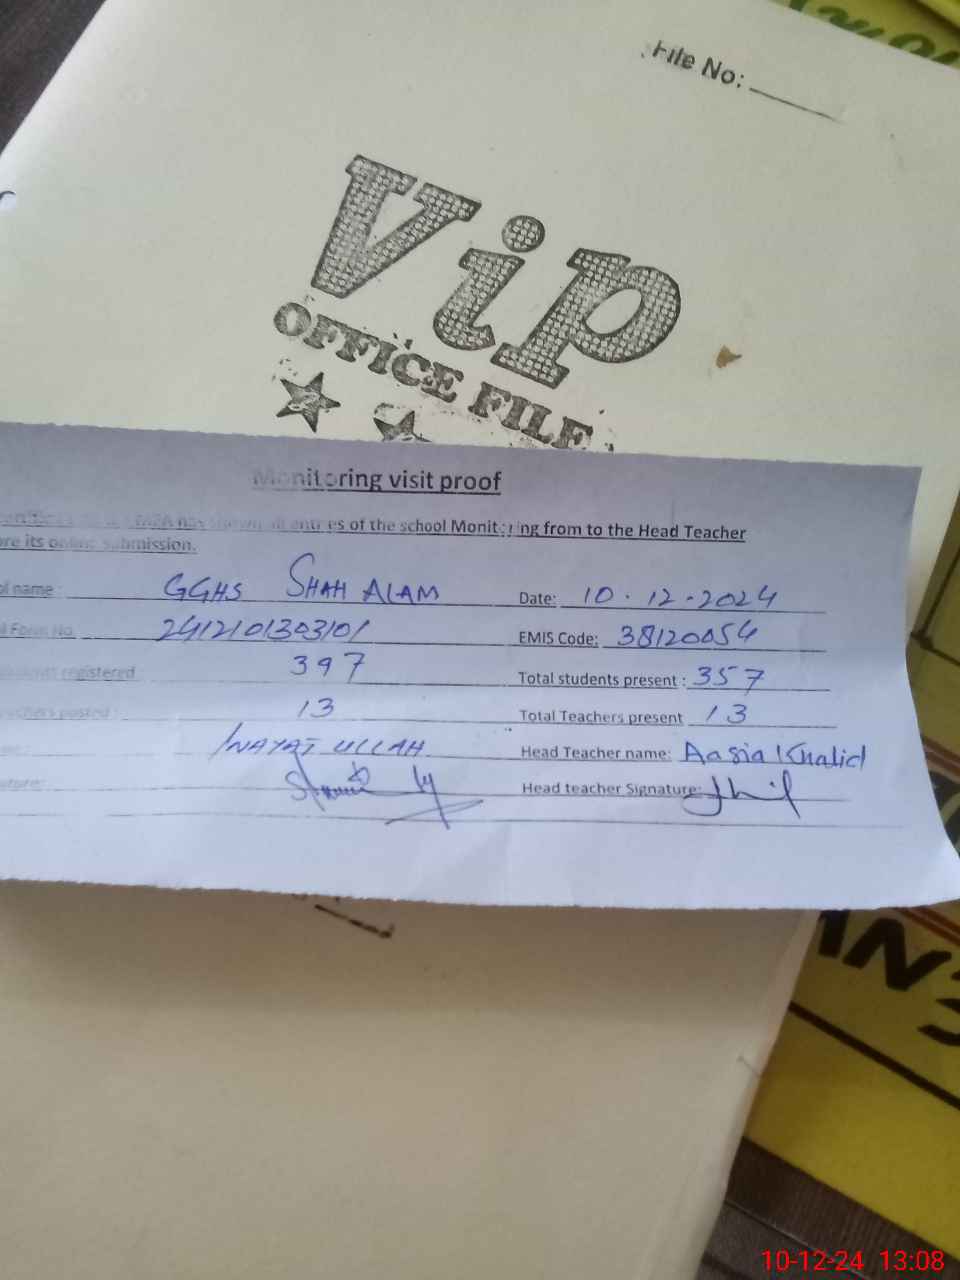 File No:
Vip
OFFICE FILE
Monitoring visit proof
has shown all entries of the school Monitoring from to the Head Teacher
its online submission.
name : GGHS SHAH ALAM Date: 10.12.2024
Form No. 2412101303101 EMIS Code: 38120054
registered : 397 Total students present : 357
posted : 13 Total Teachers present 13
INAYAT ULLAH Head Teacher name: Aasia Khalid
Head teacher Signature:
10-12-24 13:08